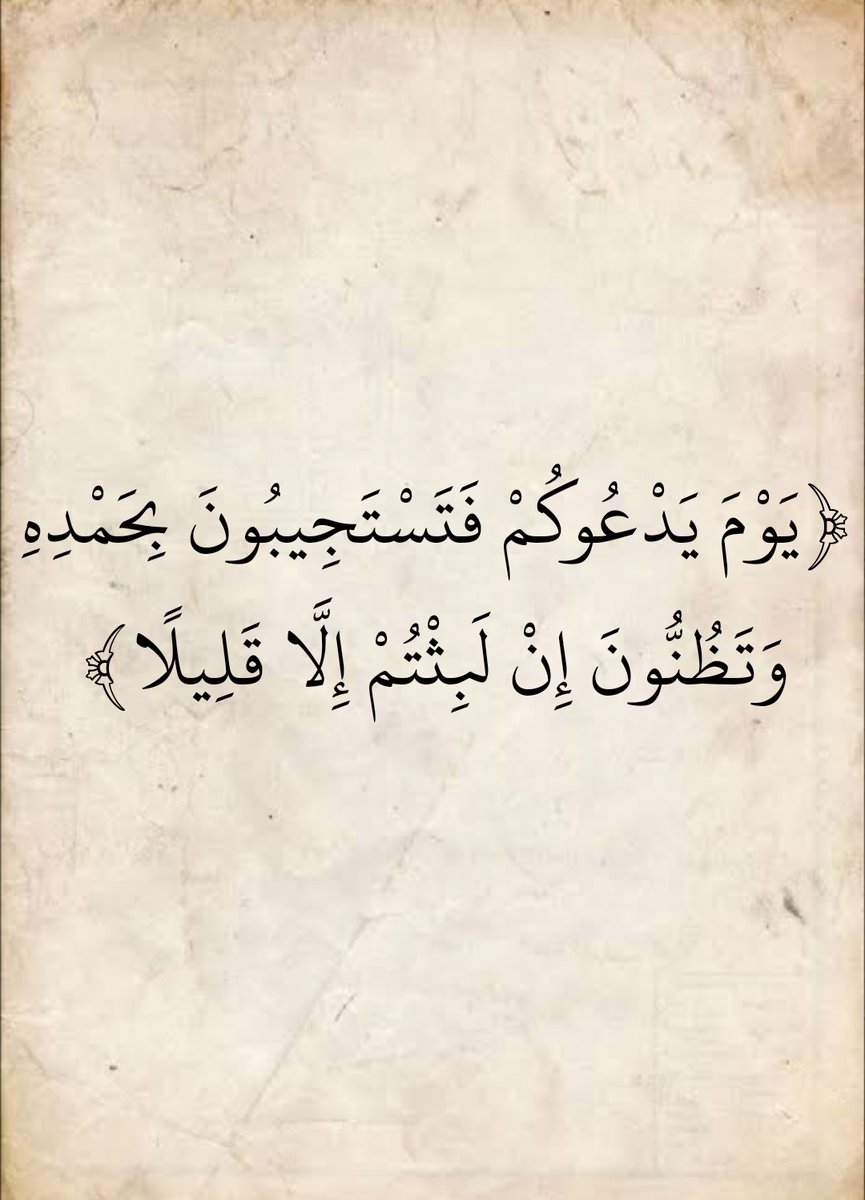 ﴿يَوْمَ يَدْعُوكُمْ فَتَسْتَجِيبُونَ بِحَمْدِهِ
وَتَظُنُّونَ إِنْ لَبِثْتُمْ إِلَّا قَلِيلًا﴾